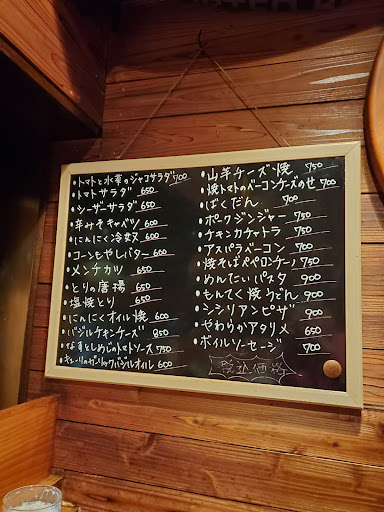 ・トマトと水菜のジャコサラダ 700
・トマトサラダ 650
・シーザーサラダ 650
・辛みそキャベツ 600
・にんにく冷奴 600
・コーンもやしバター 660
・メンチカツ 650
・とりの唐揚 650
・塩焼とり 650
・にんにくオイル焼 600
・バジルチキンチーズ 850
・なすとしめじのトマトソース 750
・キューリのガーリックバジルオイル 600
・山芋チーズ焼 750
・焼トマトのベーコンチーズのせ 700
・ばくだん 700
・ポークジンジャー 750
・チキンカチャトラ 750
・アスパラベーコン 700
・焼そばペペロンチーノ 750
・めんたいパスタ 900
・もんてく焼うどん 900
・シシリアンピザ 900
・やわらかアタリメ 650
・ボイルソーセージ 700
税込価格